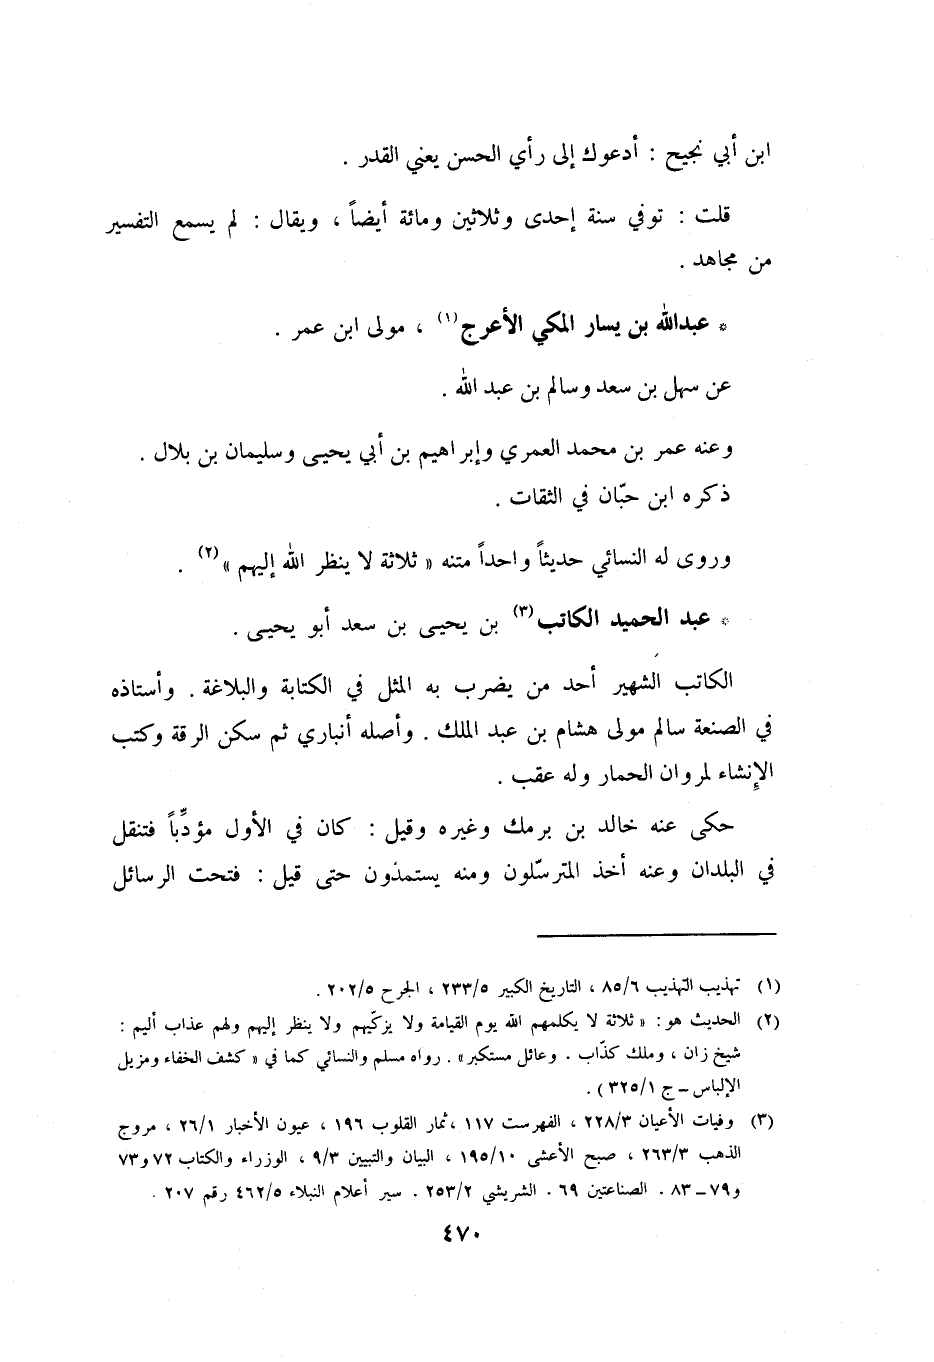 ابن أبي نجيح : أدعوك إلى رأي الحسن يعني القدر .
قلت : توفي سنة إحدى وثلاثين ومائة أيضاً ، ويقال : لم يسمع التفسير
من مجاهد .
* عبدالله بن يسار المكي الأعرج(١) ، مولى ابن عمر .
عن سهل بن سعد وسالم بن عبد الله .
وعنه عمر بن محمد العمري وإبراهيم بن أبي يحيى وسليمان بن بلال .
ذكره ابن حبّان في الثقات .
وروى له النسائي حديثاً واحداً متنه « ثلاثة لا ينظر الله إليهم »(٢) .
* عبد الحميد الكاتب(٣) بن يحيى بن سعد أبو يحيى .
الكاتب الشهير أحد من يضرب به المثل في الكتابة والبلاغة . وأستاذه
في الصنعة سالم مولى هشام بن عبد الملك . وأصله أنباري ثم سكن الرقة وكتب
الإنشاء لمروان الحمار وله عقب .
حكى عنه خالد بن برمك وغيره وقيل : كان في الأول مؤدِّباً فتنقل
في البلدان وعنه أخذ المترسّلون ومنه يستمدّون حتى قيل : فتحت الرسائل
(١) تهذيب التهذيب ٨٥/٦ ، التاريخ الكبير ٢٣٣/٥ ، الجرح ٢٠٢/٥ .
(٢) الحديث هو : « ثلاثة لا يكلمهم الله يوم القيامة ولا يزكّيهم ولا ينظر إليهم ولهم عذاب أليم :
شيخ زان ، وملك كذّاب . وعائل مستكبر» . رواه مسلم والنسائي كما في « كشف الخفاء ومزيل
الإلباس – ج ٣٢٥/١ ) .
(٣) وفيات الأعيان ٢٢٨/٣ ، الفهرست ١١٧ ،ثمار القلوب ١٩٦ ، عيون الأخبار ٢٦/١ ، مروج
الذهب ٢٦٣/٣ ، صبح الأعشى ١٩٥/١٠ ، البيان والتبيين ٩/٣ ، الوزراء والكتاب ٧٢ و٧٣
و٧٩ – ٨٣ . الصناعتين ٦٩ . الشريشي ٢٥٣/٢ . سير أعلام النبلاء ٤٦٢/٥ رقم ٢٠٧ .
٤٧٠